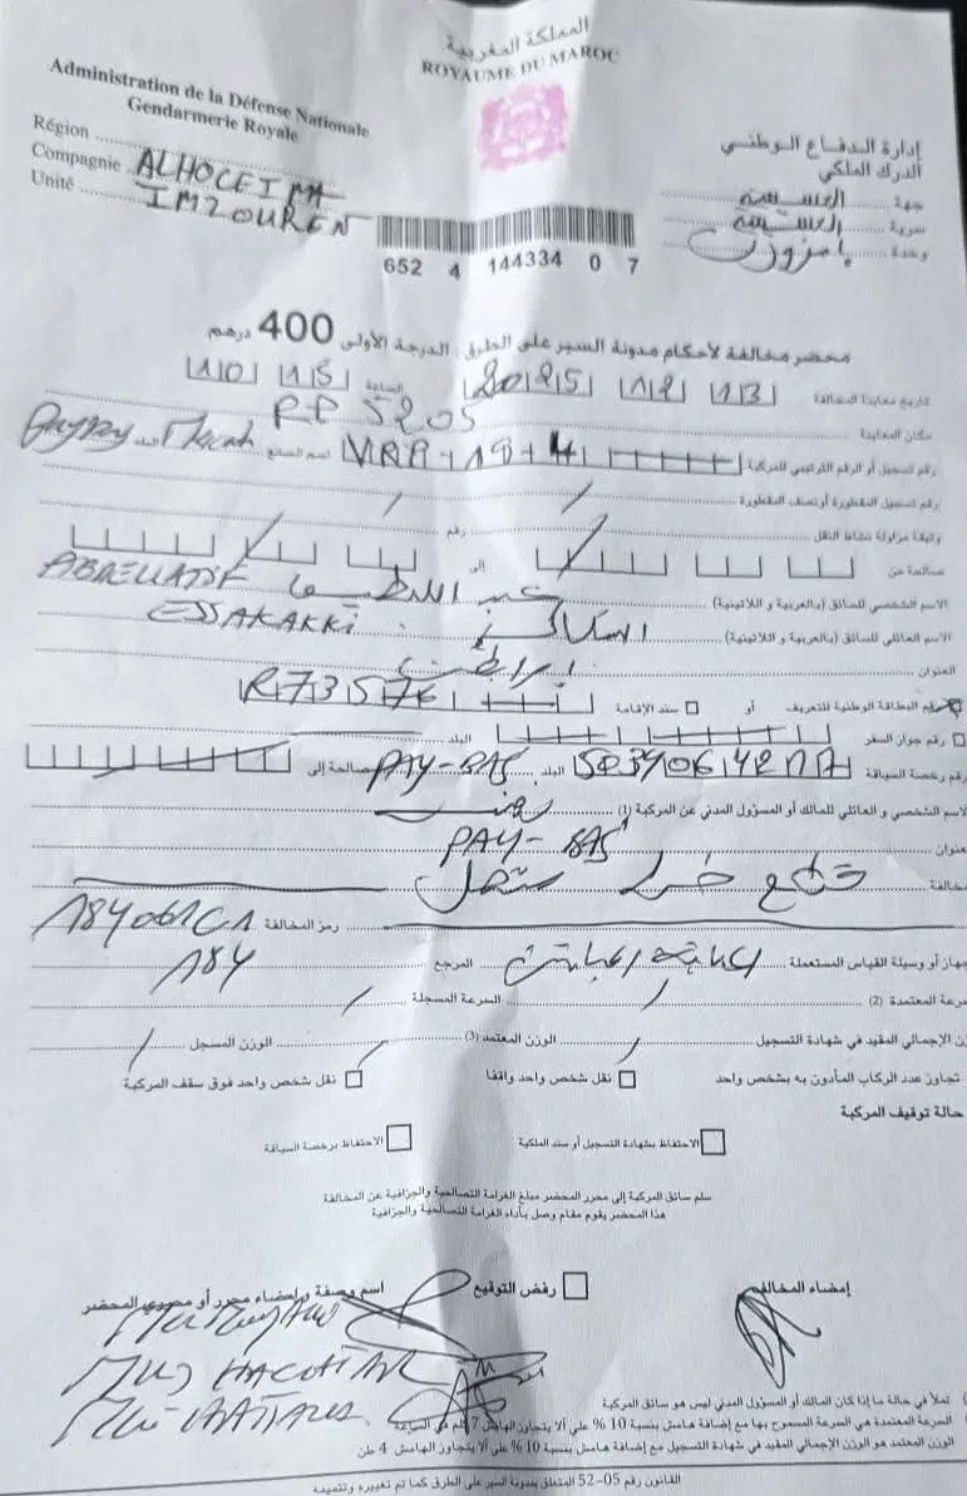 المملكة المغربية
ROYAUME DU MAROC
Administration de la Défense Nationale
Gendarmerie Royale
Région
Compagnie ALHOCEIMA
Unité IMZOUREN
إدارة الدفاع الوطني
الدرك الملكي
جهة
سرية
وحدة
652 4 144334 0 7
محضر مخالفة لأحكام مدونة السير على الطرق : الدرجة الأولى 400 درهم
تاريخ معاينة المخالفة الساعة
مكان المعاينة RP 5205
رقم تسجيل أو الرقم الترتيبي للمركبة اسم الصانع
رقم تسجيل المقطورة أو نصف المقطورة
وثيقة مزاولة نشاط النقل رقم
صالحة من إلى
الاسم الشخصي للسائق (بالعربية و اللاتينية) عبد اللطيف ABDELLATIF
الاسم العائلي للسائق (بالعربية و اللاتينية) ESSAKAKKI
العنوان
رقم البطاقة الوطنية للتعريف أو سند الإقامة R73576
رقم جواز السفر البلد
رقم رخصة السياقة البلد PAY-BAS صالحة إلى
الاسم الشخصي و العائلي للمالك أو المسؤول المدني عن المركبة (1)
عنوان PAY-BAS
مخالفة خط متصل
رمز المخالفة
جهاز أو وسيلة القياس المستعملة المرجع 184
السرعة المعتمدة (2) السرعة المسجلة
الوزن الإجمالي المقيد في شهادة التسجيل الوزن المعتمد (3) الوزن المسجل
تجاوز عدد الركاب المأذون به بشخص واحد نقل شخص واحد واقفا نقل شخص واحد فوق سقف المركبة
حالة توقيف المركبة
الاحتفاظ بشهادة التسجيل أو سند الملكية الاحتفاظ برخصة السياقة
سلم سائق المركبة إلى محرر المحضر مبلغ الغرامة التصالحية والجزافية عن المخالفة
هذا المحضر يقوم مقام وصل بأداء الغرامة التصالحية والجزافية
إمضاء المخالف رفض التوقيع اسم وصفة وإمضاء محرر أو محرري المحضر
تملأ في حالة ما إذا كان المالك أو المسؤول المدني ليس هو سائق المركبة
السرعة المعتمدة هي السرعة المسموح بها مع إضافة هامش بنسبة 10 % على ألا يتجاوز الهامش 7 كلم في الساعة
الوزن المعتمد هو الوزن الإجمالي المقيد في شهادة التسجيل مع إضافة هامش بنسبة 10 % على ألا يتجاوز الهامش 4 طن
القانون رقم 05-52 المتعلق بمدونة السير على الطرق كما تم تغييره وتتميمه